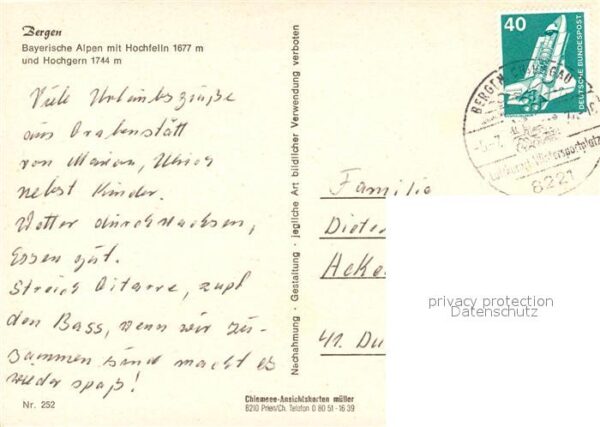 Bergen
Bayerische Alpen mit Hochfelln 1677 m
und Hochgern 1744 m
Viele Urlaubsgrüße
aus Grabenstätt
von Marion, Ulrich
nebst Kinder.
Wetter durchwachsen,
Essen gut.
Streich Gitarre, zupf
den Bass, wenn wir zu-
sammen sind macht es
wieder spaß!
Nr. 252
Nachahmung · Gestaltung · jegliche Art bildlicher Verwendung verboten
Chiemsee-Ansichtskarten müller
8210 Prien/Ch. Telefon 0 80 51 - 16 39
40
DEUTSCHE BUNDESPOST
BERGEN, CHIEMGAU
Luftkurort Wintersportplatz
8221
Familie
Dieter
41. Du
privacy protection
Datenschutz